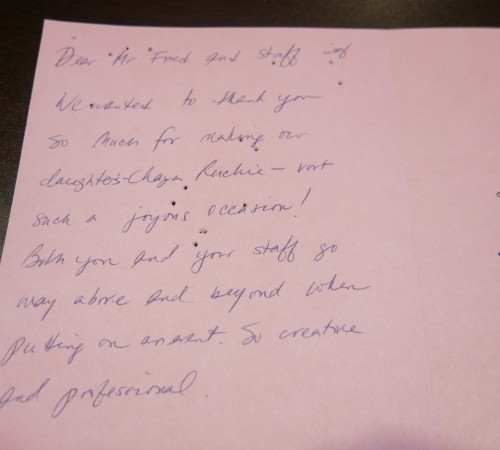 Dear Mr Fried and staff of
We wanted to thank you
so much for making our
daughter's - Chaya Ruchie - vort
such a joyous occasion!
Both you and your staff go
way above and beyond when
putting on an event. So creative
and professional.